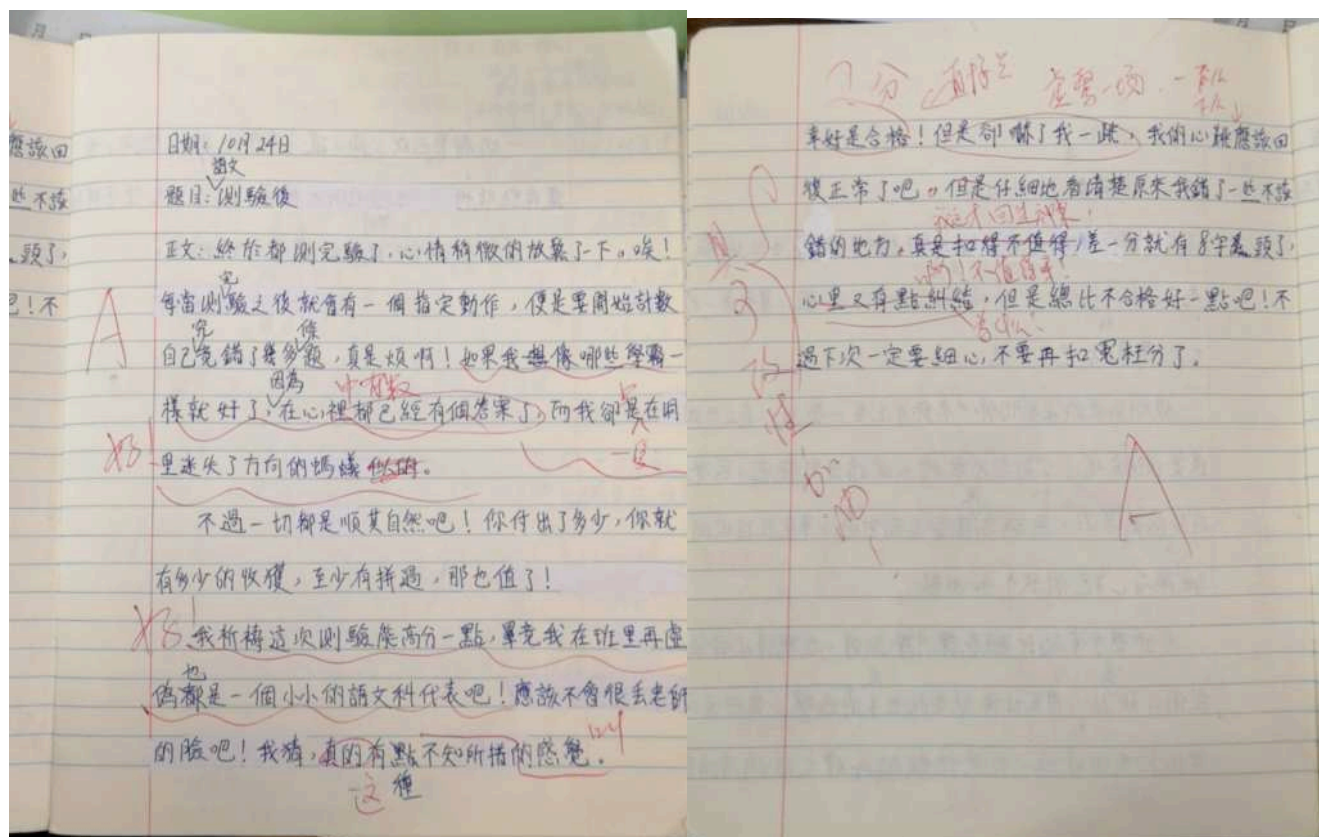 應該回
些不該
頭了,
吧!不
日期:10月24日
語文
題目:測驗後
正文:終於都測完驗了,心情稍微的放鬆了一下。唉!
完
每當測驗之後就會有一個指定動作,便是要開始計數
究 條
自己竟錯了幾多題,真是煩啊!如果我想像哪些學霸一
因為 中有数
樣就好了,在心裡都已經有個答案了,而我卻是在田
里迷失了方向的螞蟻似的。
A
好!
不過一切都是順其自然吧!你付出了多少,你就
有多少的收獲,至少有拼過,那也值了!
好
我祈禱這次測驗能高分一點,畢竟我在班里再虛
也
偽都是一個小小的語文科代表吧!應該不會很丟老師
的臉吧!我猜,真的有點不知所措的感覺。
这 種
分
幸好是合格!但是卻嚇了我一跳,我的心跳應該回
復正常了吧。但是仔細地看清楚原來我錯了一些不該
錯的地方,真是扣得不值得,差一分就有8字爲頭了,
啊!不值得!
心里又有點糾結,但是總比不合格好一點吧!不
過下次一定要細心,不要再扣冤枉分了。
A